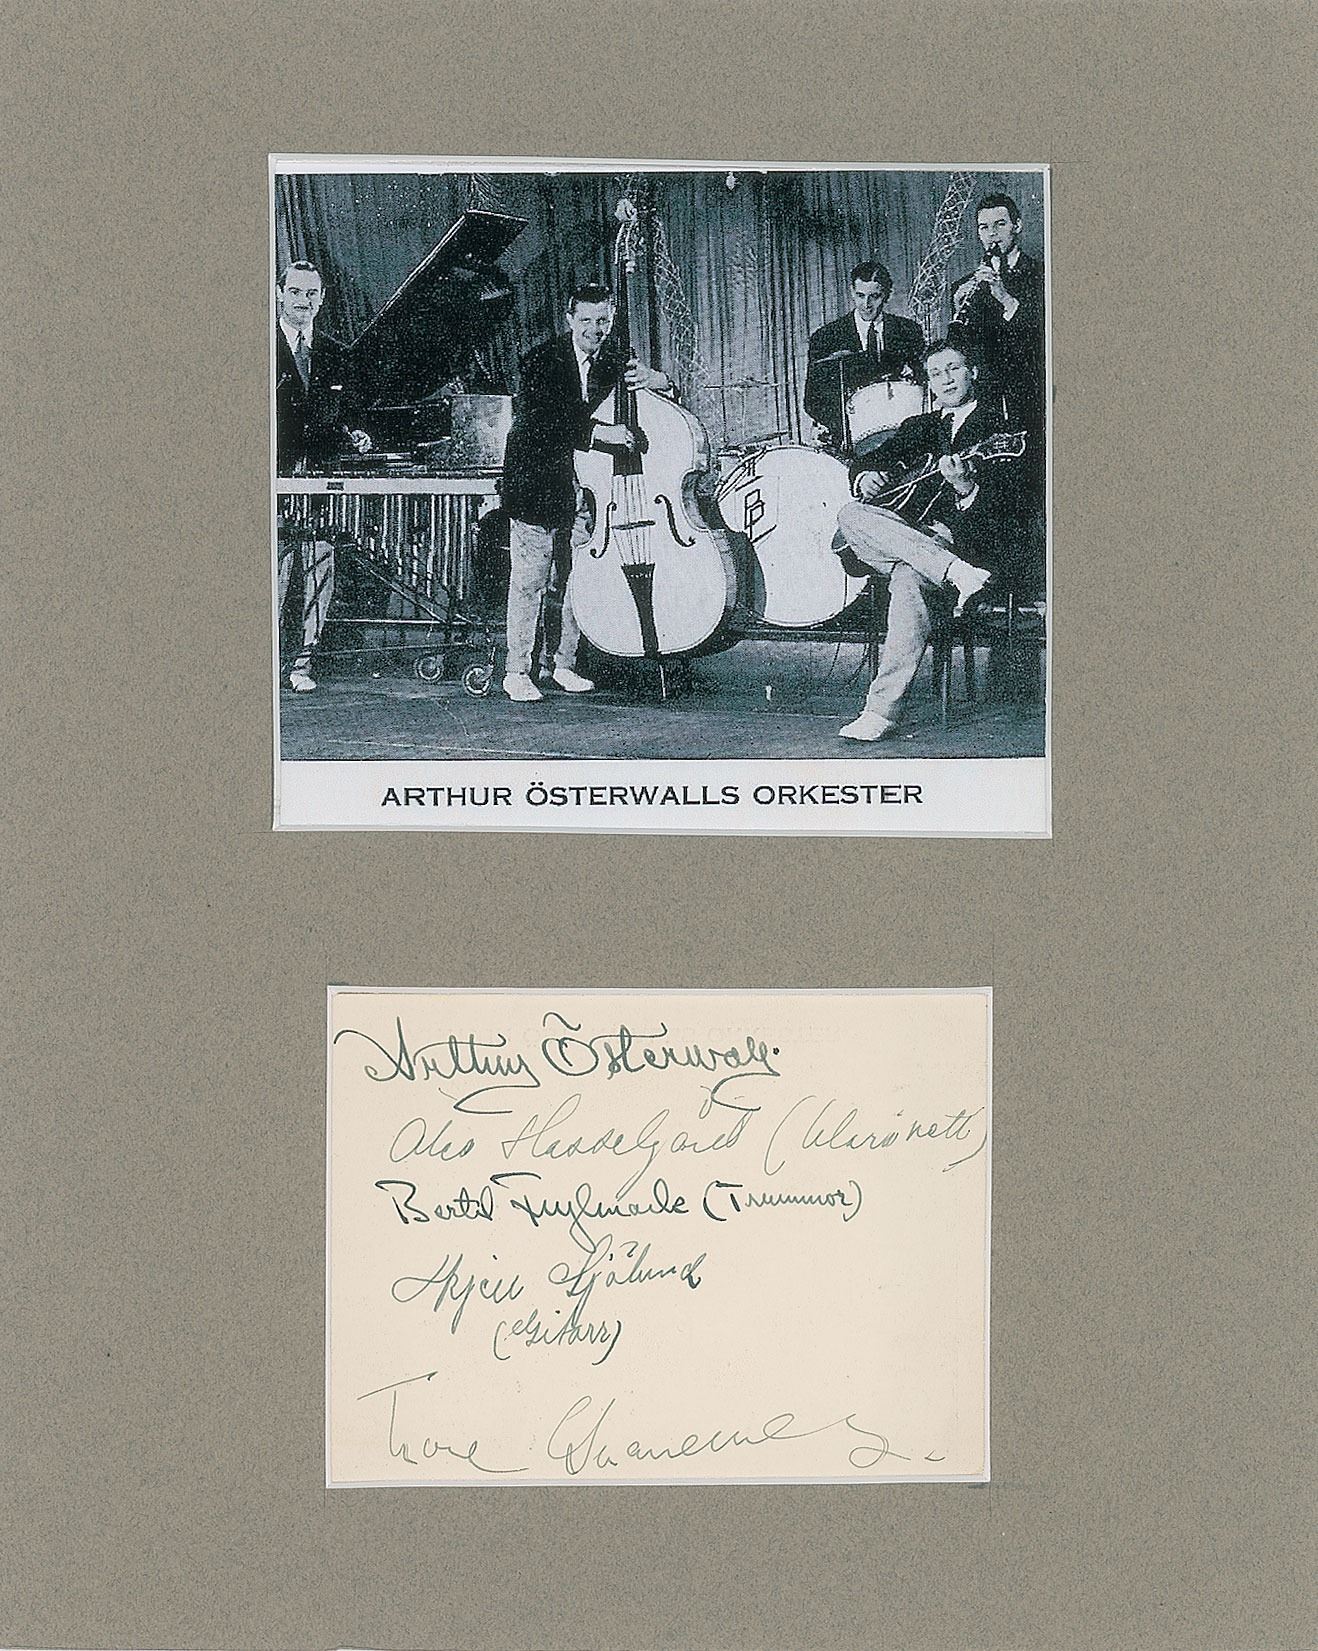 ARTHUR ÖSTERWALLS ORKESTER
Arthur Österwall.
Åke Hasselgård (Klarinett)
Bertil Frylmark (Trummor)
Kjell Sjölund
(Gitarr)
Thore